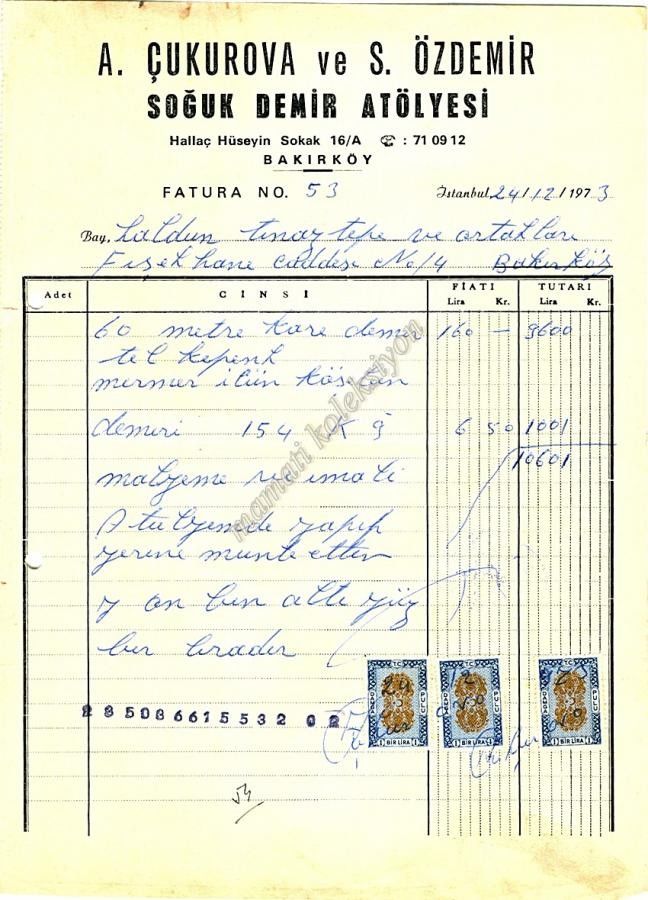 A. ÇUKUROVA ve S. ÖZDEMİR
SOĞUK DEMİR ATÖLYESİ
Hallaç Hüseyin Sokak 16/A ☎ : 71 09 12
BAKIRKÖY
FATURA NO. 53 İstanbul 24/12/1973
Bay, Haldun tınaztepe ve ortakları
Fişekhane caddesi No/4 Bakırköy
Adet CİNSİ FİATI TUTARI
Lira Kr. Lira Kr.
60 metre kare demir 160 — 9600
tel kepenk
mermer için köşeban
demiri 154 Kg 6 50 1001
10601
malzeme ve imali
Atulyemde yapıp
yerine munte ettim
y on bin altı yüz
bir liradır
2350866155532 02
TC
DAMGA PULU
1 BİR LİRA 1
TC
DAMGA PULU
1 BİR LİRA 1
TC
DAMGA PULU
1 BİR LİRA 1
24 12 973
54
mamati koleksiyon